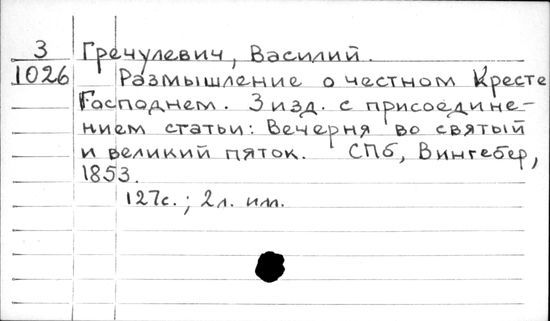 3 Гречулевич, Василий.
1026 Размышление о честном Кресте
Господнем. 3 изд. с присоедине-
нием статьи: Вечерня во святый
и великий пяток. СПб, Вингебер,
1853.
127с.; 2л. илл.